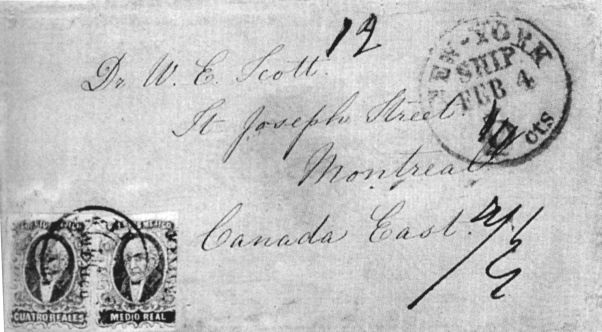 12
Dr W. E. Scott.
St Joseph Street
Montreal
Canada East.
NEW-YORK
SHIP
FEB 4
cts
MEXICO
CUATRO REALES
MEDIO REAL